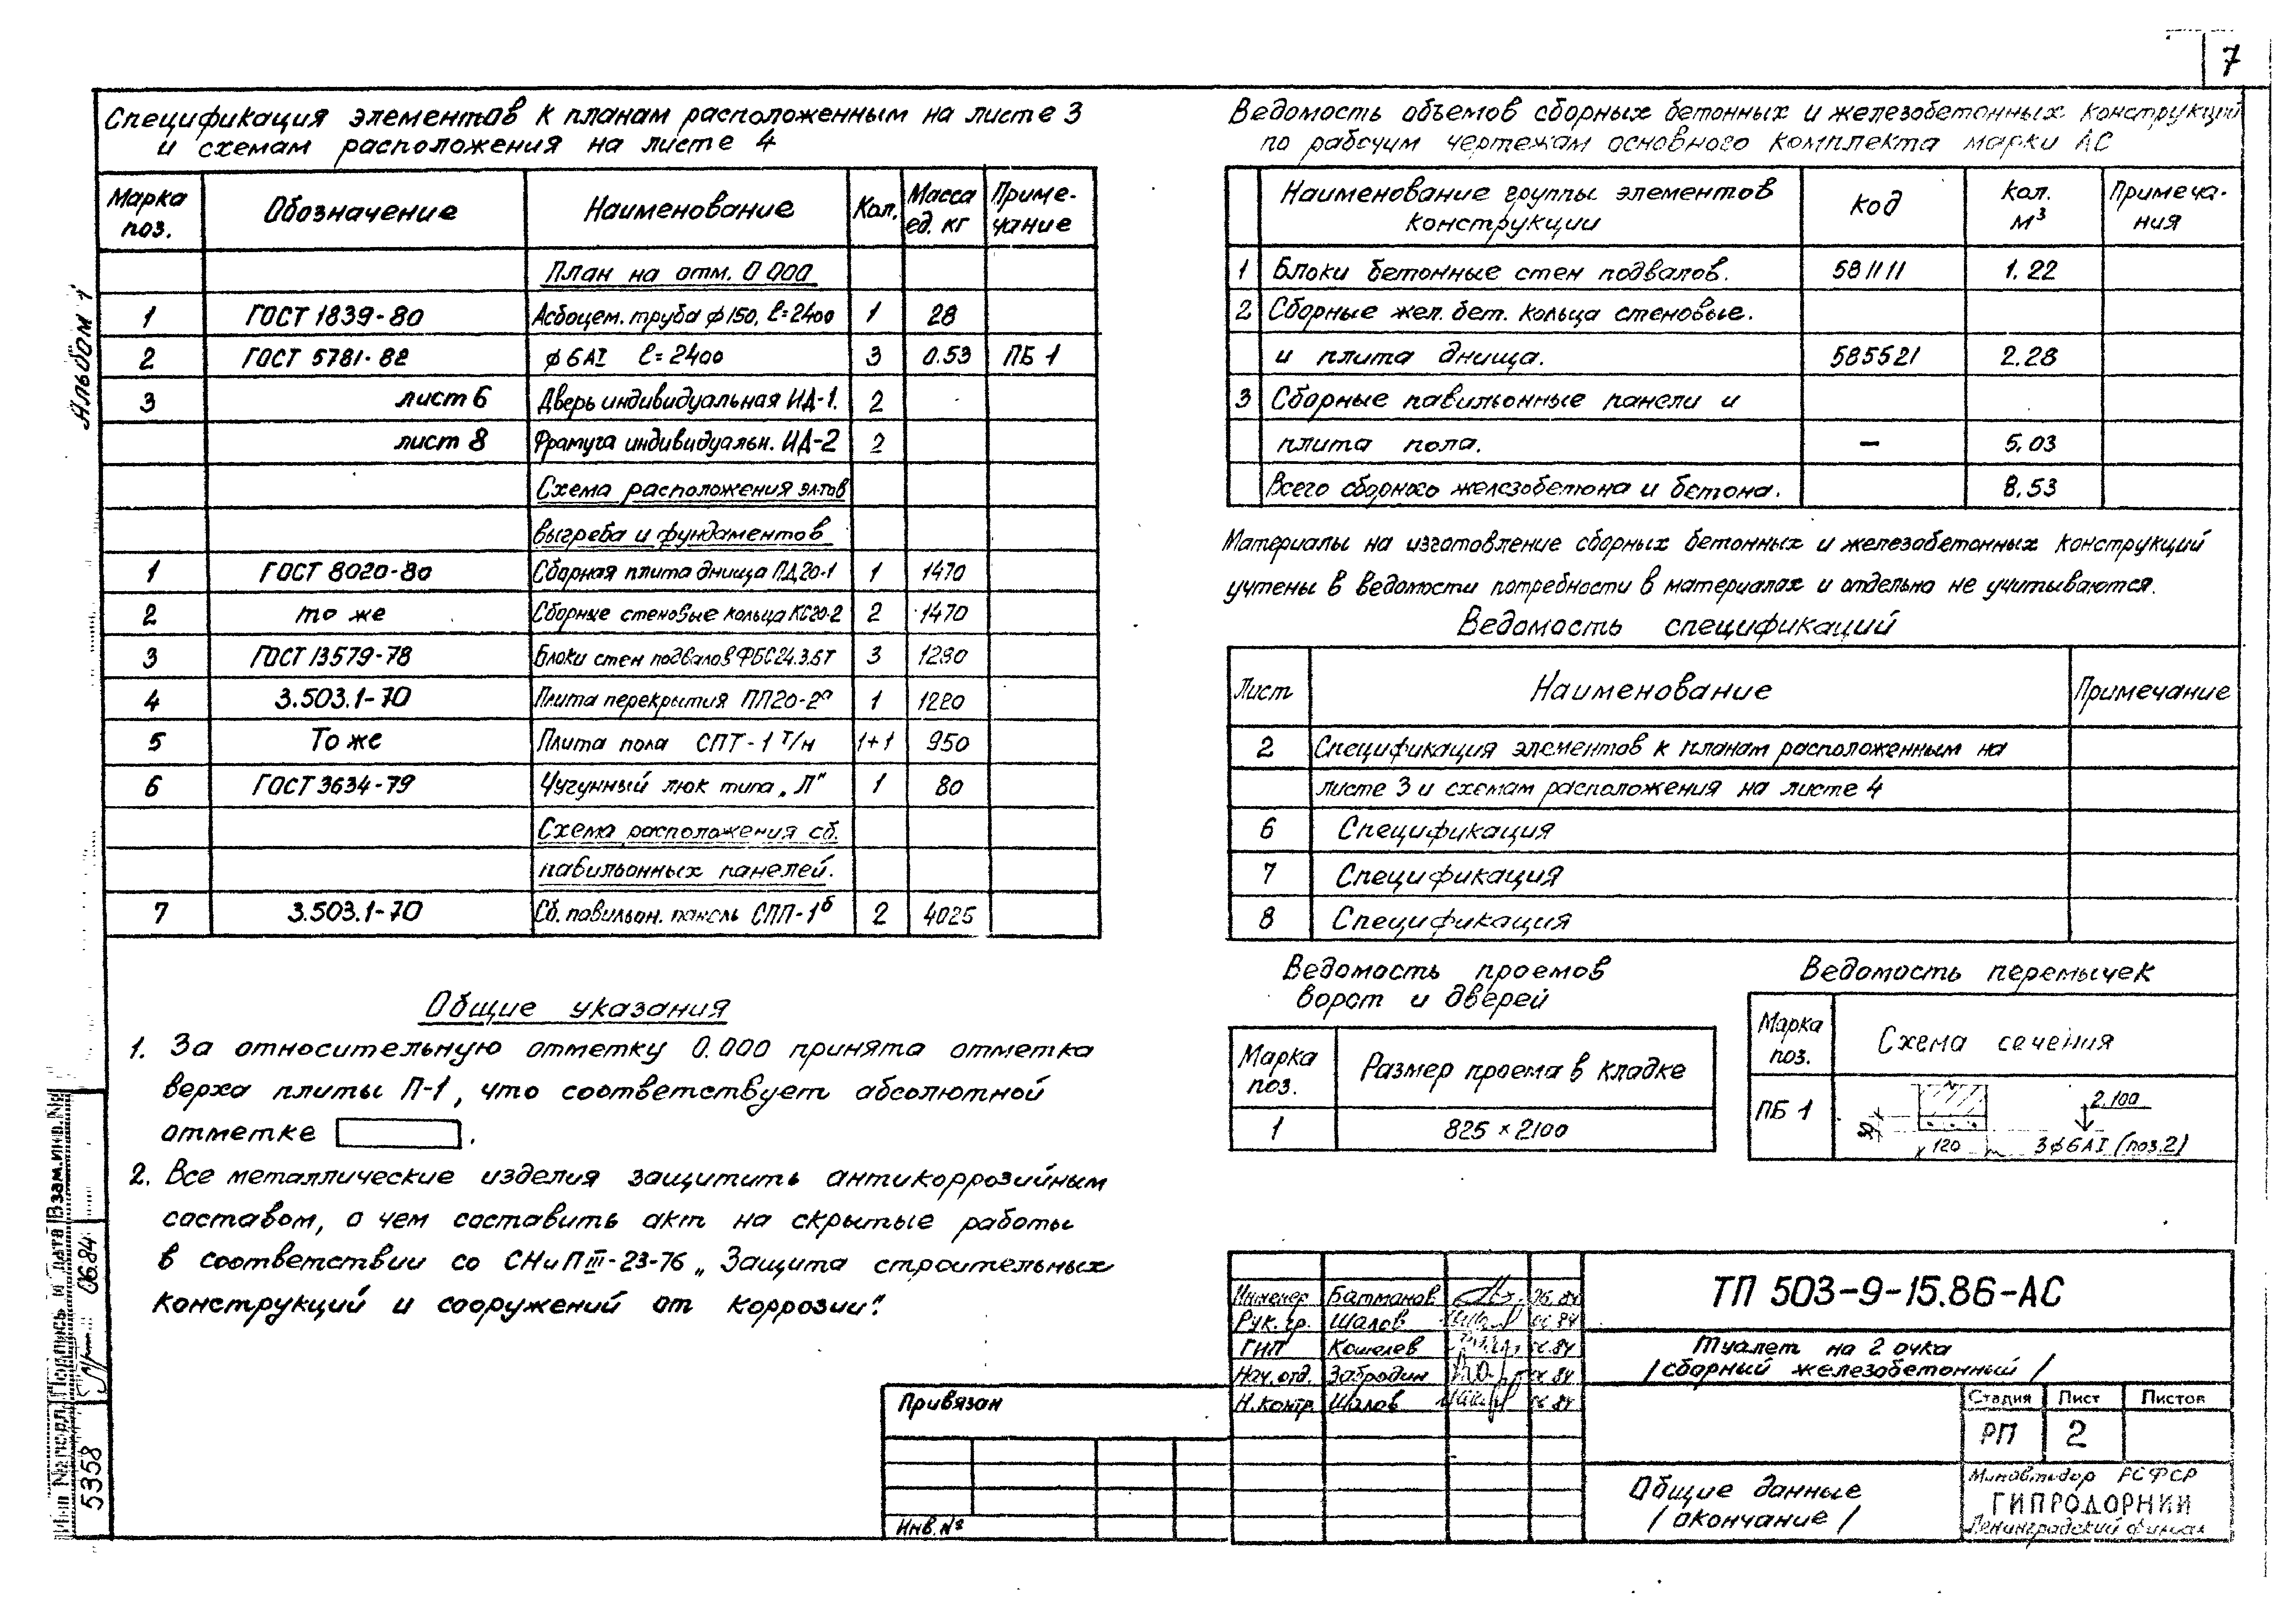 7
Альбом 1
Спецификация элементов к планам расположенным на листе 3
и схемам расположения на листе 4
Марка поз. Обозначение Наименование Кол. Масса ед. кг Примечание
План на отм. 0.000
1 ГОСТ 1839-80 Асбоцем. труба ф150, ℓ=2400 1 28
2 ГОСТ 5781-82 ф6АI ℓ=2400 3 0.53 ПБ 1
3 лист 6 Дверь индивидуальная ИД-1. 2
лист 8 Фрамуга индивидуальн. ИД-2 2
Схема расположения эл-тов
выгреба и фундаментов
1 ГОСТ 8020-80 Сборная плита днища ПД20-1 1 1470
2 то же Сборные стеновые кольца КС20-2 2 1470
3 ГОСТ 13579-78 Блоки стен подвалов ФБС24.3.6Т 3
4 3.503.1-70 Плита перекрытия ПП20-2ᵃ 1
5 То же Плита пола СПТ-1 т/н 1+1 950
6 ГОСТ 3634-79 Чугунный люк типа „Л" 1 80
Схема расположения сб.
павильонных панелей.
7 3.503.1-70 Сб. павильон. панель СПП-1ᵇ 2 4025
Общие указания
1. За относительную отметку 0.000 принята отметка
верха плиты П-1, что соответствует абсолютной
отметке .
2. Все металлические изделия защитить антикоррозийным
составом, о чем составить акт на скрытые работы
в соответствии со СНиП III-23-76 „Защита строительных
конструкций и сооружений от коррозии".
Ведомость объемов сборных бетонных и железобетонных конструкций
по рабочим чертежам основного комплекта марки АС
Наименование группы элементов конструкции Код Кол. м³ Примечания
1 Блоки бетонные стен подвалов. 581111 1.22
2 Сборные жел. бет. кольца стеновые.
и плита днища. 585521 2.28
3 Сборные павильонные панели и
плита пола. — 5.03
Всего сборного железобетона и бетона. 8.53
Материалы на изготовление сборных бетонных и железобетонных конструкций
учтены в ведомости потребности в материалах и отдельно не учитываются.
Ведомость спецификаций
Лист Наименование Примечание
2 Спецификация элементов к планам расположенным на
листе 3 и схемам расположения на листе 4
6 Спецификация
7 Спецификация
8 Спецификация
Ведомость проемов
ворот и дверей
Марка поз. Размер проема в кладке
1 825 × 2100
Ведомость перемычек
Марка поз. Схема сечения
ПБ 1 2.100
120 3ф6АI (поз.2)
Инженер Батманов 06.84
Рук. гр. Шалов 06.84
ГИП Кошелев 06.84
Нач. отд. Забродин 06.84
Н. контр. Шалов 06.84
ТП 503-9-15.86-АС
Туалет на 2 очка
/сборный железобетонный/
Стадия Лист Листов
РП 2
Общие данные
/окончание/
Минавтодор РСФСР
ГИПРОДОРНИИ
Ленинградский филиал
Привязан
Инв. №
Инв № подл. Подпись и дата Взам. инв. №
5358 06.84